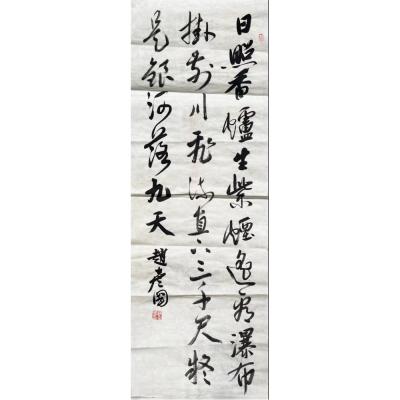 日照香爐生紫煙遙看瀑布
掛前川飛流直下三千尺疑
是銀河落九天
趙彥國